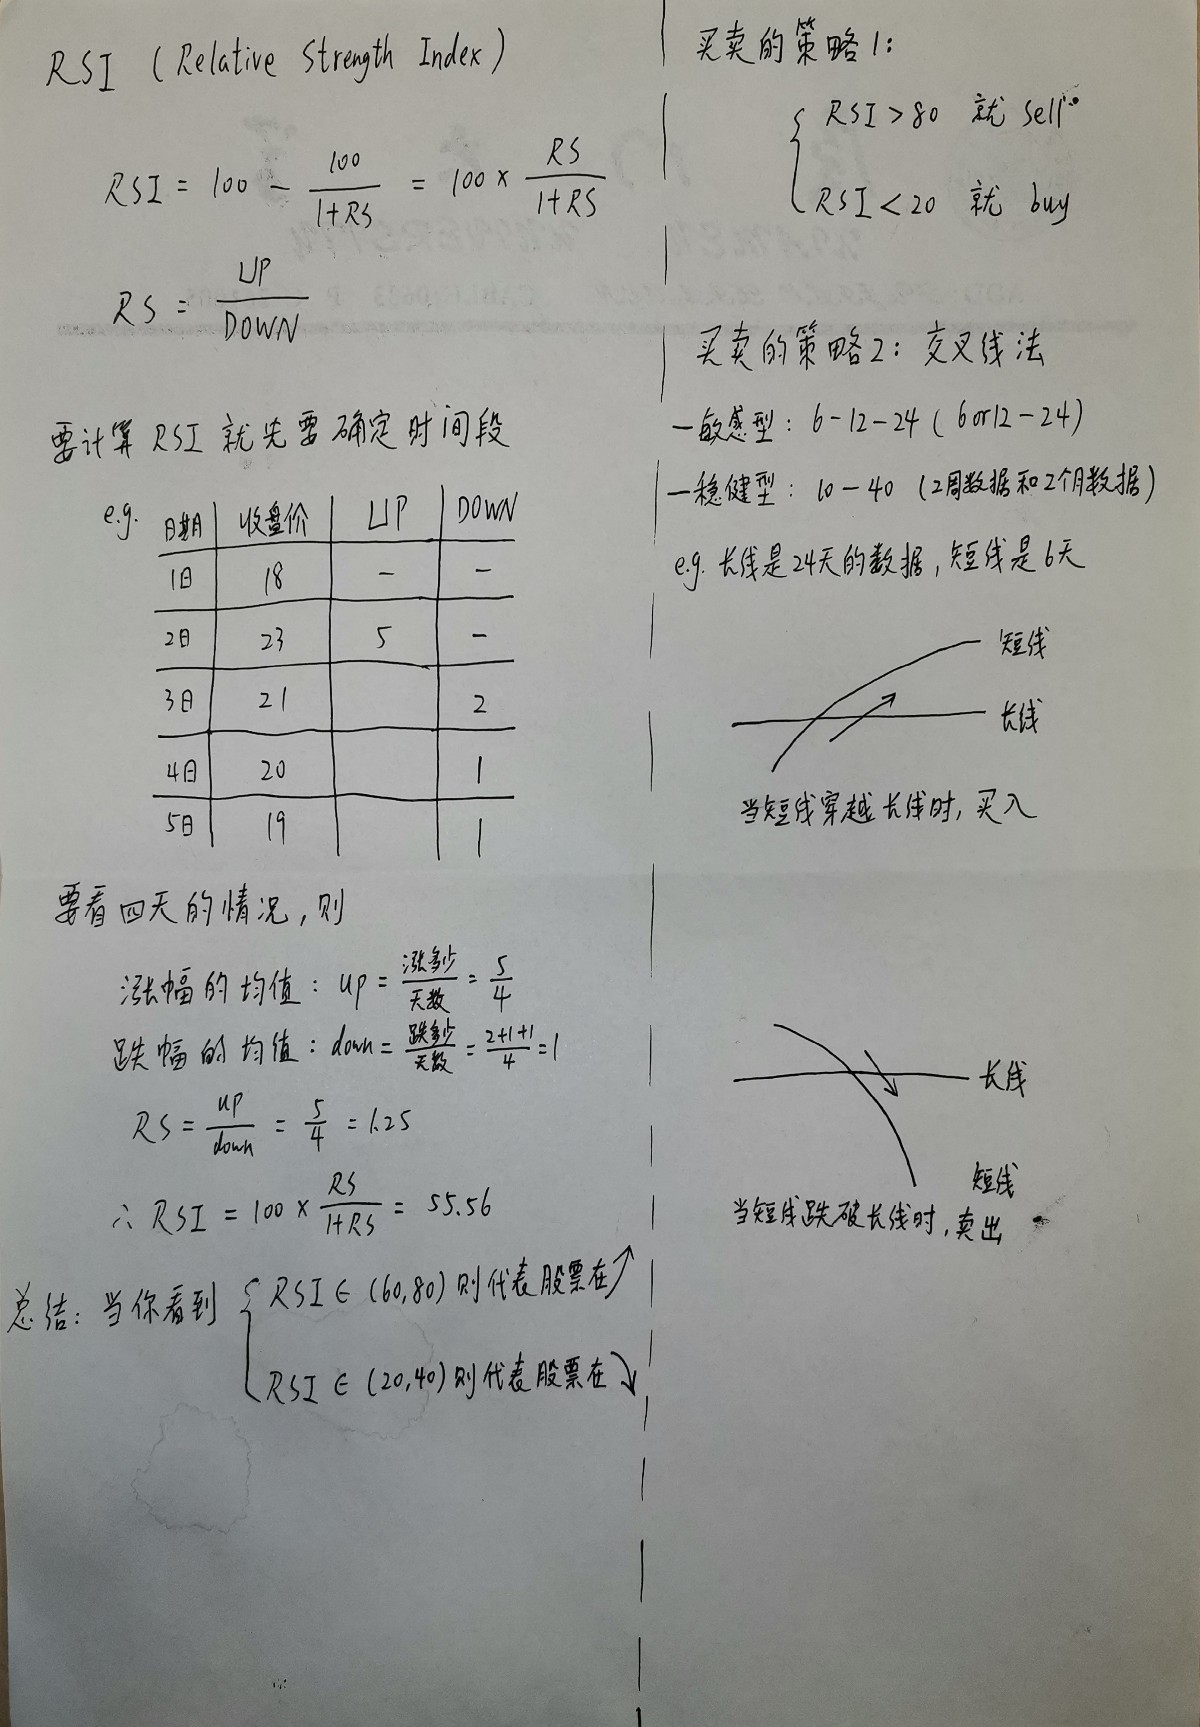 RSI (Relative Strength Index)
RSI = 100 - 100/(1+RS) = 100 × RS/(1+RS)
RS = UP/DOWN
要计算 RSI 就先要确定时间段
e.g. 日期 收盘价 UP DOWN
1日 18 - -
2日 23 5 -
3日 21 2
4日 20 1
5日 19 1
要看四天的情况,则
涨幅的均值: up = 涨多少/天数 = 5/4
跌幅的均值: down = 跌多少/天数 = (2+1+1)/4 = 1
RS = up/down = 5/4 = 1.25
∴ RSI = 100 × RS/(1+RS) = 55.56
总结: 当你看到
RSI ∈ (60,80) 则代表股票在↗
RSI ∈ (20,40) 则代表股票在↘
买卖的策略1:
RSI > 80 就 sell
RSI < 20 就 buy
买卖的策略2: 交叉线法
-敏感型: 6-12-24 (6 or 12-24)
-稳健型: 10-40 (2周数据和2个月数据)
e.g. 长线是24天的数据,短线是6天
短线
长线
当短线穿越长线时,买入
长线
短线
当短线跌破长线时,卖出